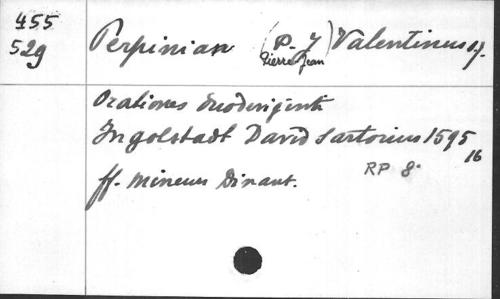 455
529
Perpinian (P. J Valentinus sj.
Pierre Jean
Orationes duodeviginti
Ingolstadt David Sartorius 1595
16
RP 8°
ff. mineurs Dinant.